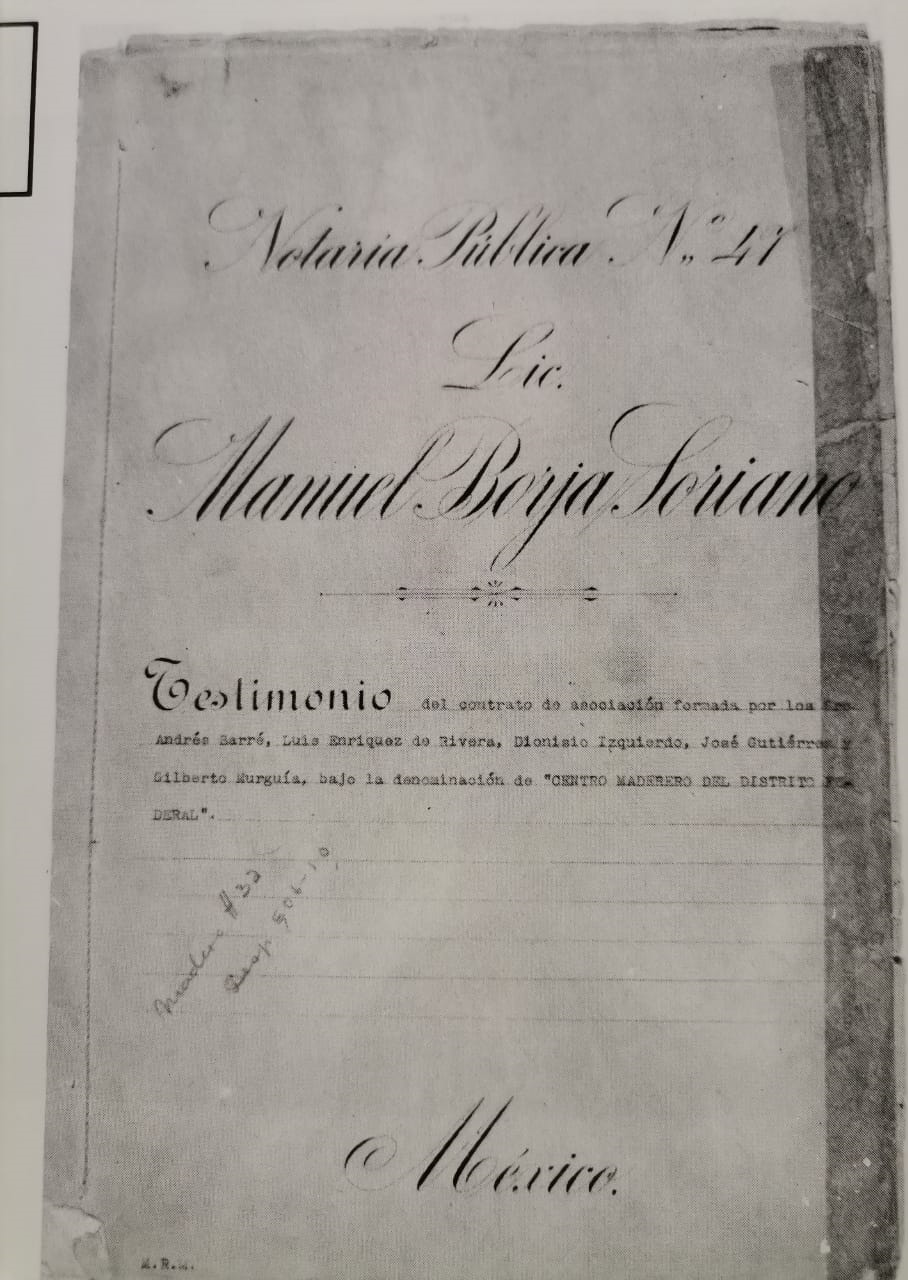 Notaria Pública N.º 47
Lic.
Manuel Borja Soriano
Testimonio del contrato de asociación formada por los Sres.
Andrés Barré, Luis Enriquez de Rivera, Dionisio Izquierdo, José Gutiérrez y
Gilberto Murguía, bajo la denominación de "CENTRO MADERERO DEL DISTRITO FE-
DERAL".
Madero #32
Desp. 506-10
México.